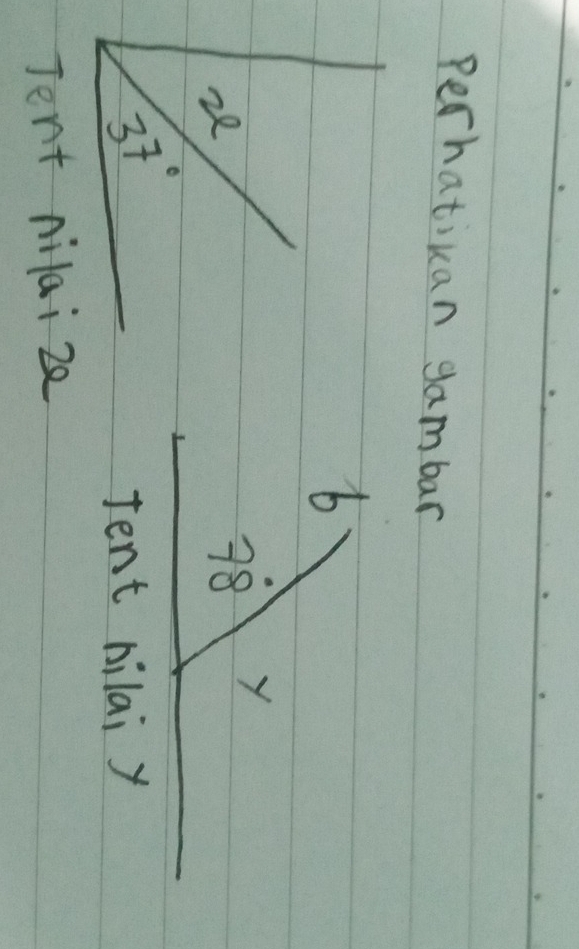 Perhatikan gambar
x
37°
Tent nilai x
b
78°
y
Tent nilai y